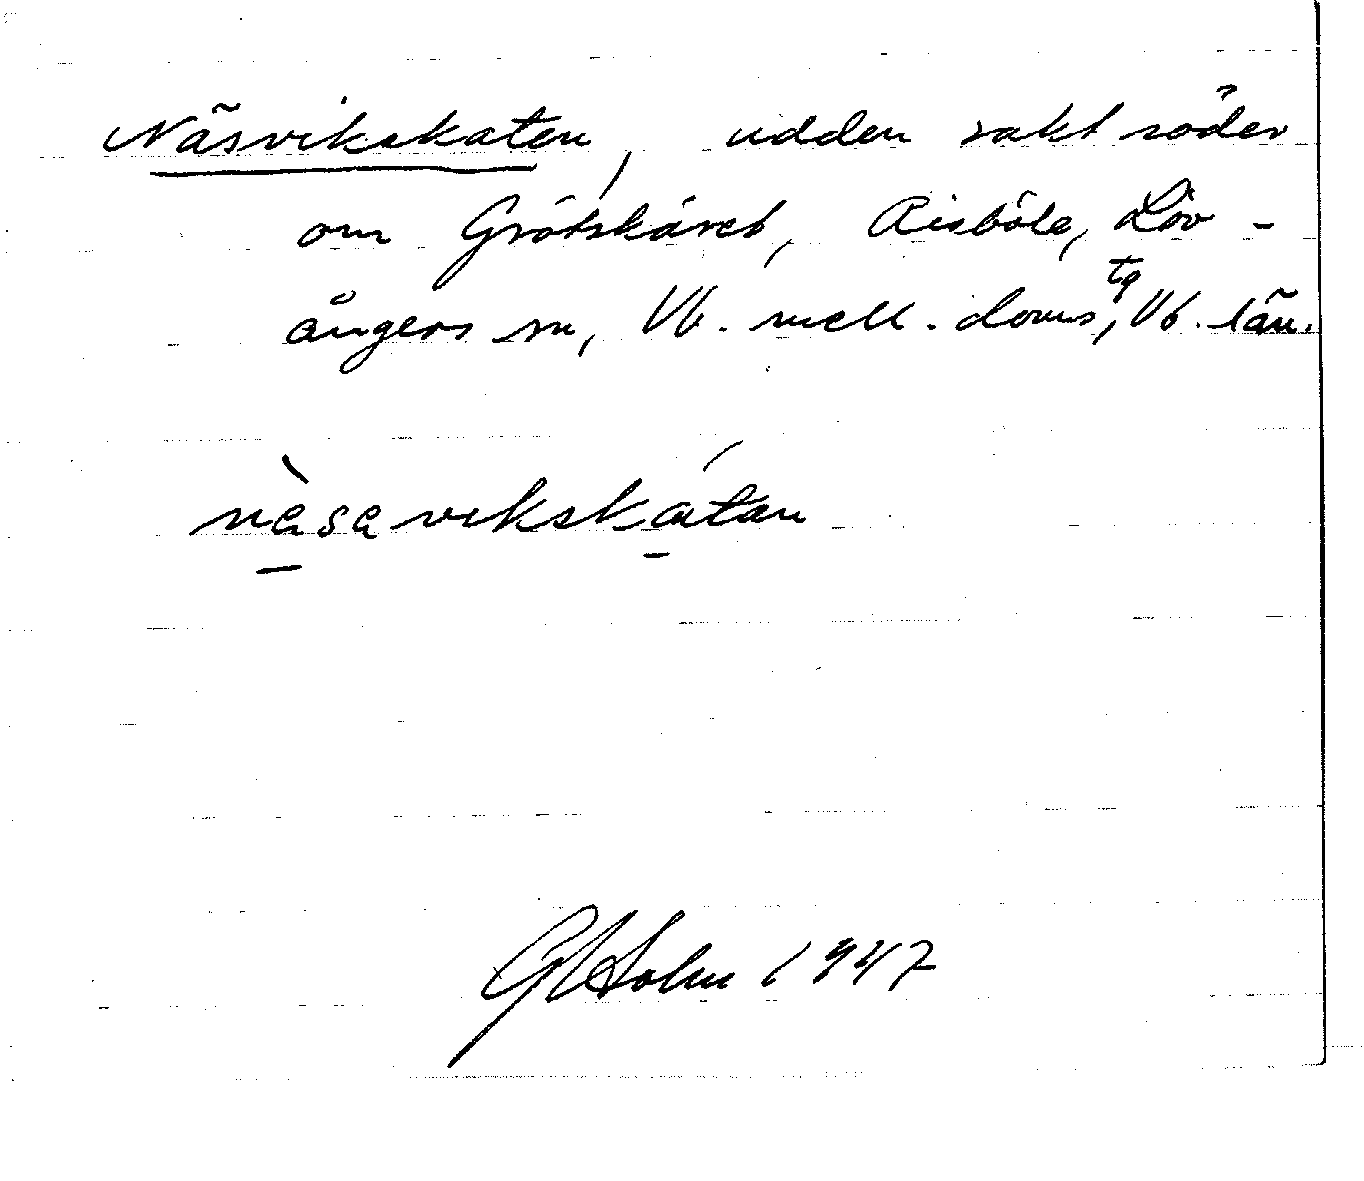 Näsvikskaten, udden rakt söder
om Grötskäret, Risböle, Löv-
ångers sn, Vb. mell. doms tg, Vb. län.
nèsavikskátan
G Holm 1947